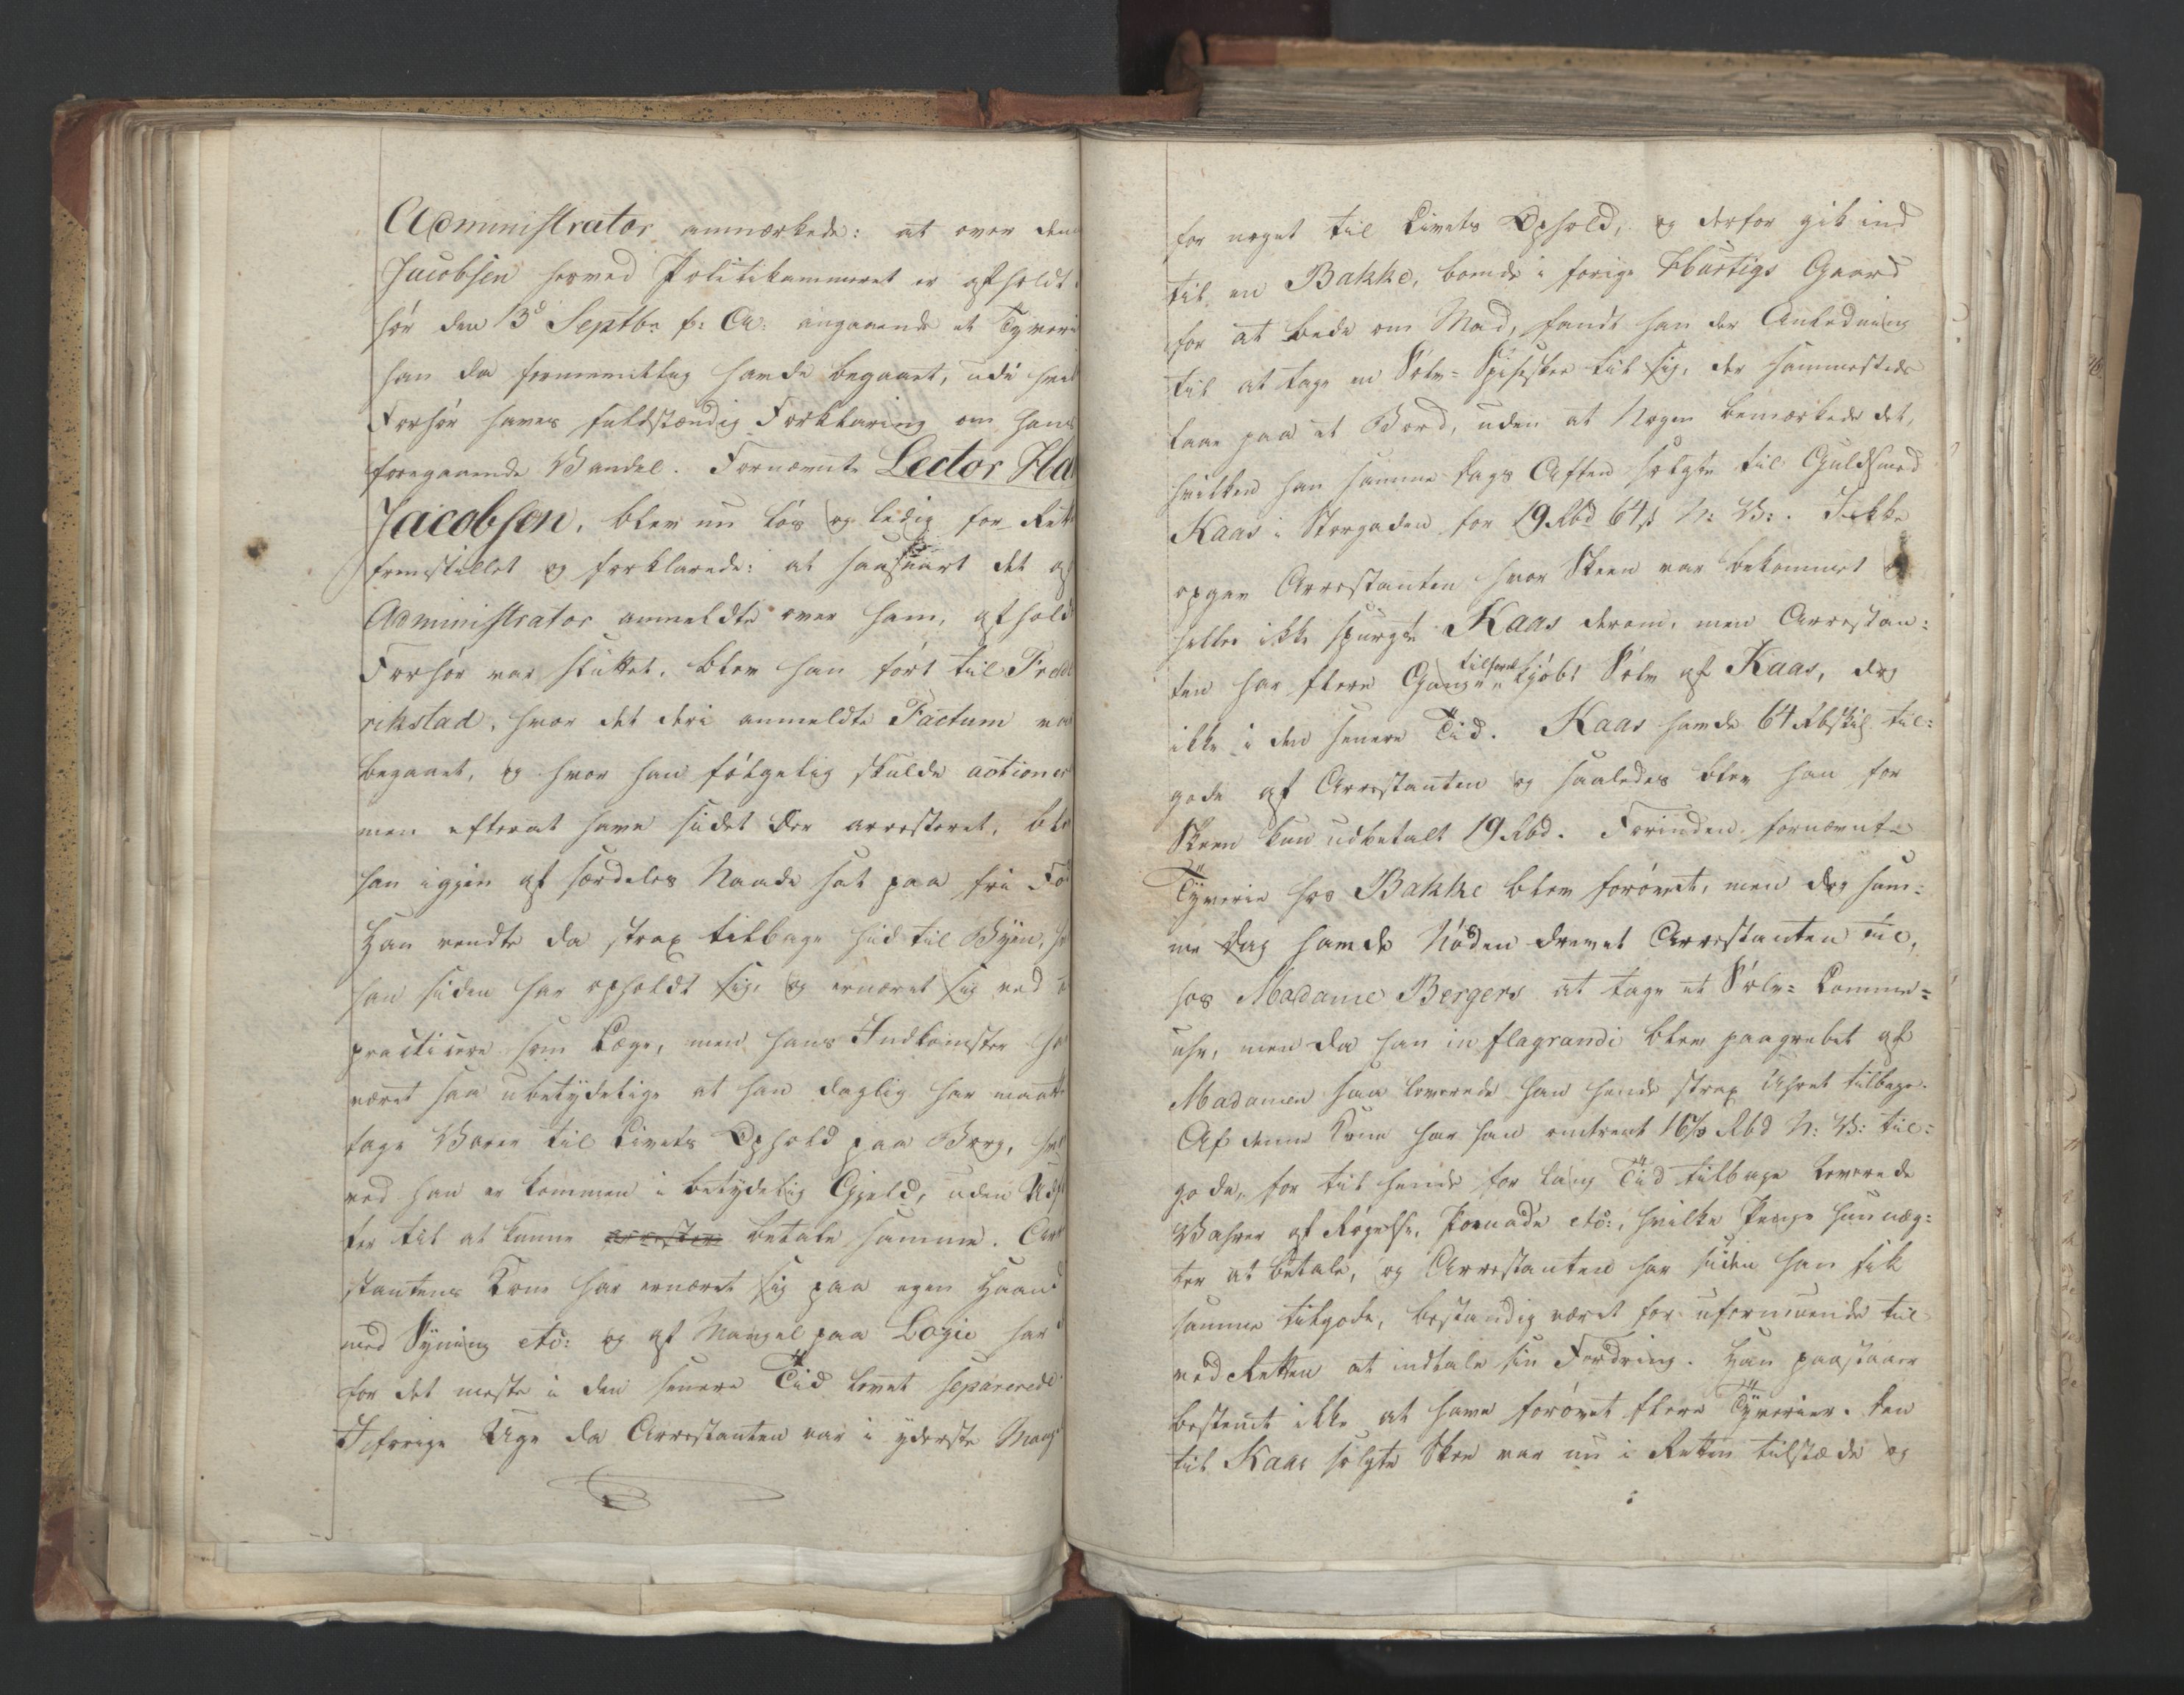 Administrator anmærkede: at over den
Jacobsen herved Politikammeret er afholdt
hør den 13d Septbr f: A: angaaende et Tyveri
han da formiddag havde begaaet, udi hvil
Forhør haves fuldstændig Forklaring om hans
foregaaende Vandel. Fornævnte Lector Ha
Jacobsen, blev nu løs og ledig for Rett
fremstillet og forklarede: at saasnart det af
Administrator anmeldte over ham, afhold
Forhør var sluttet, blev han ført til Fred
rikstad, hvor det deri anmeldte Factum va
begaaet, og hvor han følgelig skulde actioner
men efterat have sidet der arresteret, ble
han igjen af særdeles Naade sat paa fri Fod
Han vendte da strax tilbage hid til Byen, h
han siden har opholdt sig, og ernæret sig ved a
practicere som Læge, men hans Indkomster ha
været saa ubetydelige at han daglig har maatt
tage Varer til Livets Ophold paa Borg, hvor
ved han er kommen i betydelig Gjeld, uden Udsi
ter til at kunne arresten betale samme. Arre
stantens Kone har ernæret sig paa egen Haand
med Syning etc: og af Mangel paa Logie har
for det meste i den senere Tid levet separerede
I forrige Uge da Arrestanten var i yderste Mang
for noget til Livets Ophold, og derfor gik ind
til en Bakke, boende i forrige Hurtigs Gaard
for at bede om Mad, fandt han der Anledning
til at tage en Sølv- Spiseskee til sig, der sammesteds
laae paa et Bord, uden at Nogen bemærkede det,
hvilken han samme Dags Aften solgte til Guldsmed
Kaas i Storgaden for 19 Rbd 64 s N: V:. Ikke
opgav Arrestanten hvor Skeen var bekommet
heller ikke spurgte Kaas derom, men Arrestan-
ten har flere Gange tilforn kjøbt Sølv af Kaas, dog
ikke i den senere Tid. Kaas havde 64 Rbskil. til-
gode af Arrestanten og saaledes blev han for
Skeen kun udbetalt 19 Rbd. Forinden fornævnte
Tyverie hos Bakke blev forøvet, men dog sam-
me Dag havde Nøden drevet Arrestanten til,
hos Madame Bergers at tage et Sølv- Lomme-
uhr, men da han in flagrandi blev paagrebet af
Madamen saa leverede han hende strax Uhret tilbage.
Af denne Kone har han omtrent 1670 Rbd N: V: til-
gode, for til hende for lang Tid tilbage leverede
Vahrer af Røgelse, Pomade etc:, hvilke Penge hun næg-
ter at betale, og Arrestanten har siden han fik
samme tilgode, bestandig været for uformuende til
ved Retten at indtale sin Fordring. Han paastaaer
bestemt ikke at have forøvet flere Tyverier. Den
til Kaas solgte Skee var nu i Retten tilstæde og